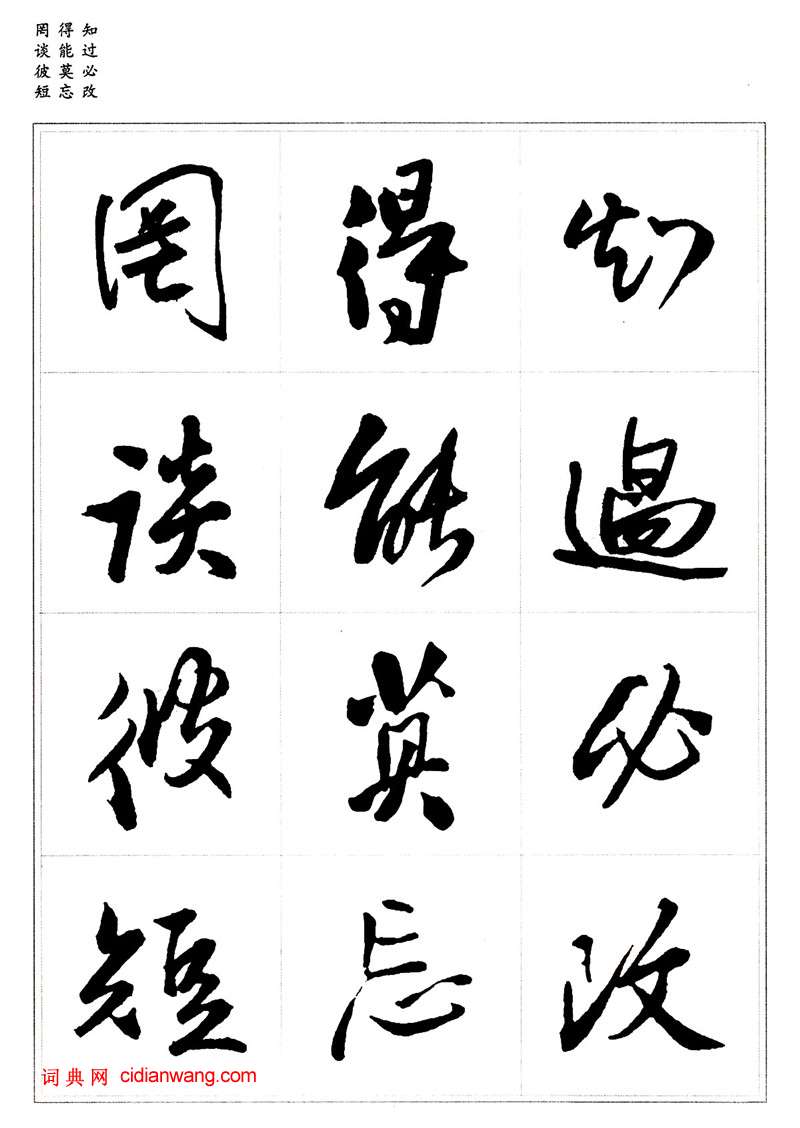 知过必改
得能莫忘
罔谈彼短
知過必改
得能莫忘
罔谈彼短
词典网 cidianwang.com